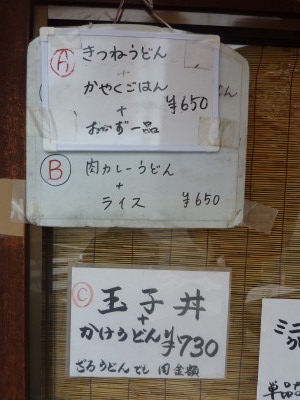 A
きつねうどん
+
かやくごはん
+
¥650
おかず一品
B
肉カレーうどん
+
ライス ¥650
C
玉子丼
+
かけうどん ¥730
ざるうどんでも同金額
ミニ
単品